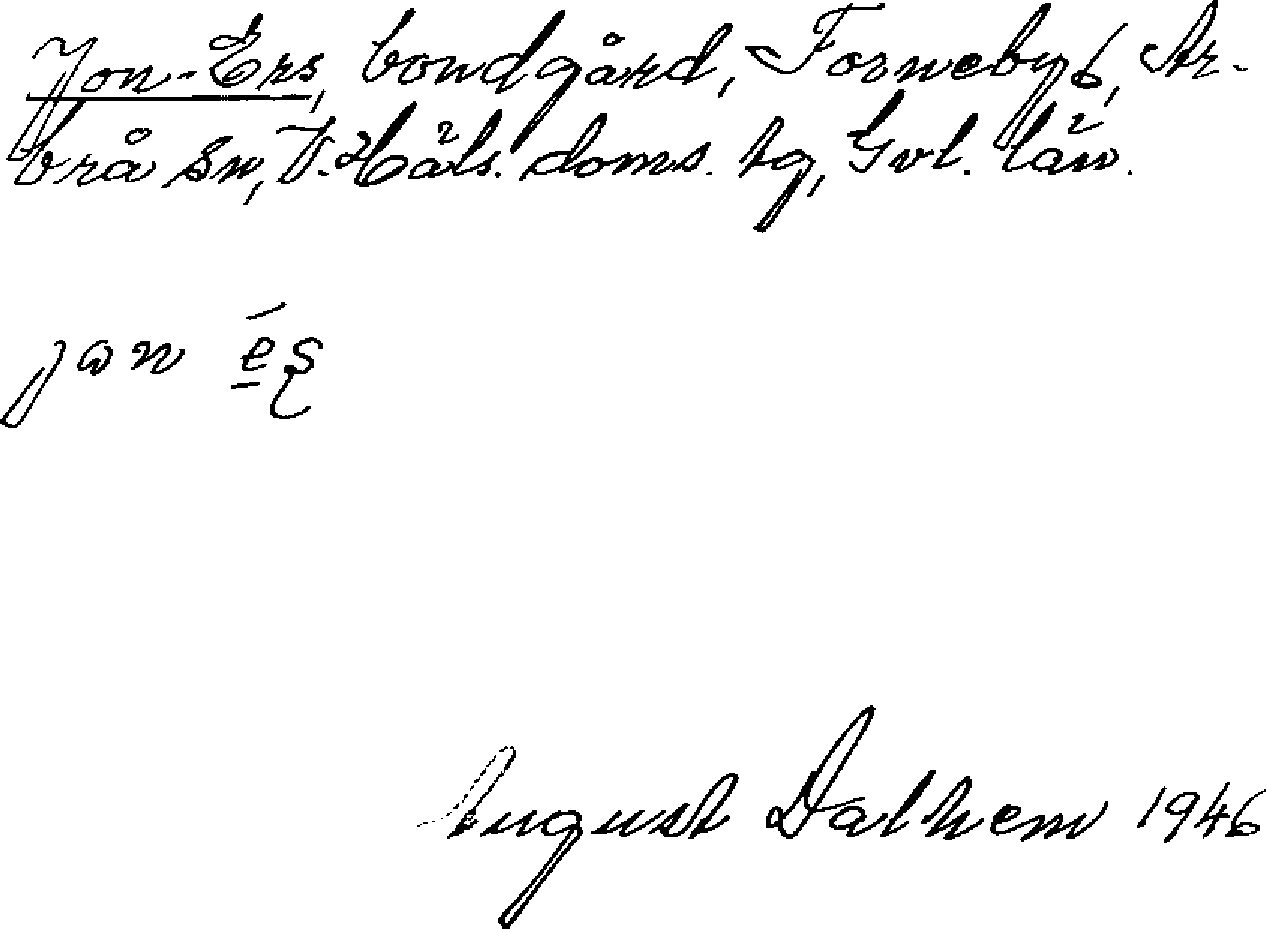 Jon-Ers, bondgård, Forneby 6, Ar-
brå sn, V. Häls. doms. tg, Gvl. län.
jon é̲ș
August Dalhem 1946